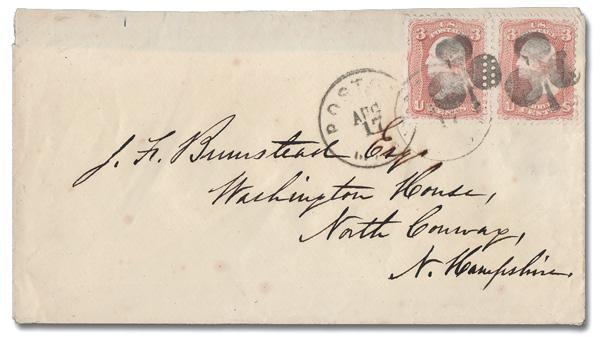 3 U.S. POSTAGE 3
3 U.S. POSTAGE 3
U THREE CENTS S
U THREE CENTS S
BOSTON
AUG
17
17
J. F. Bumstead Esq
Washington House,
North Conway,
N. Hampshire.